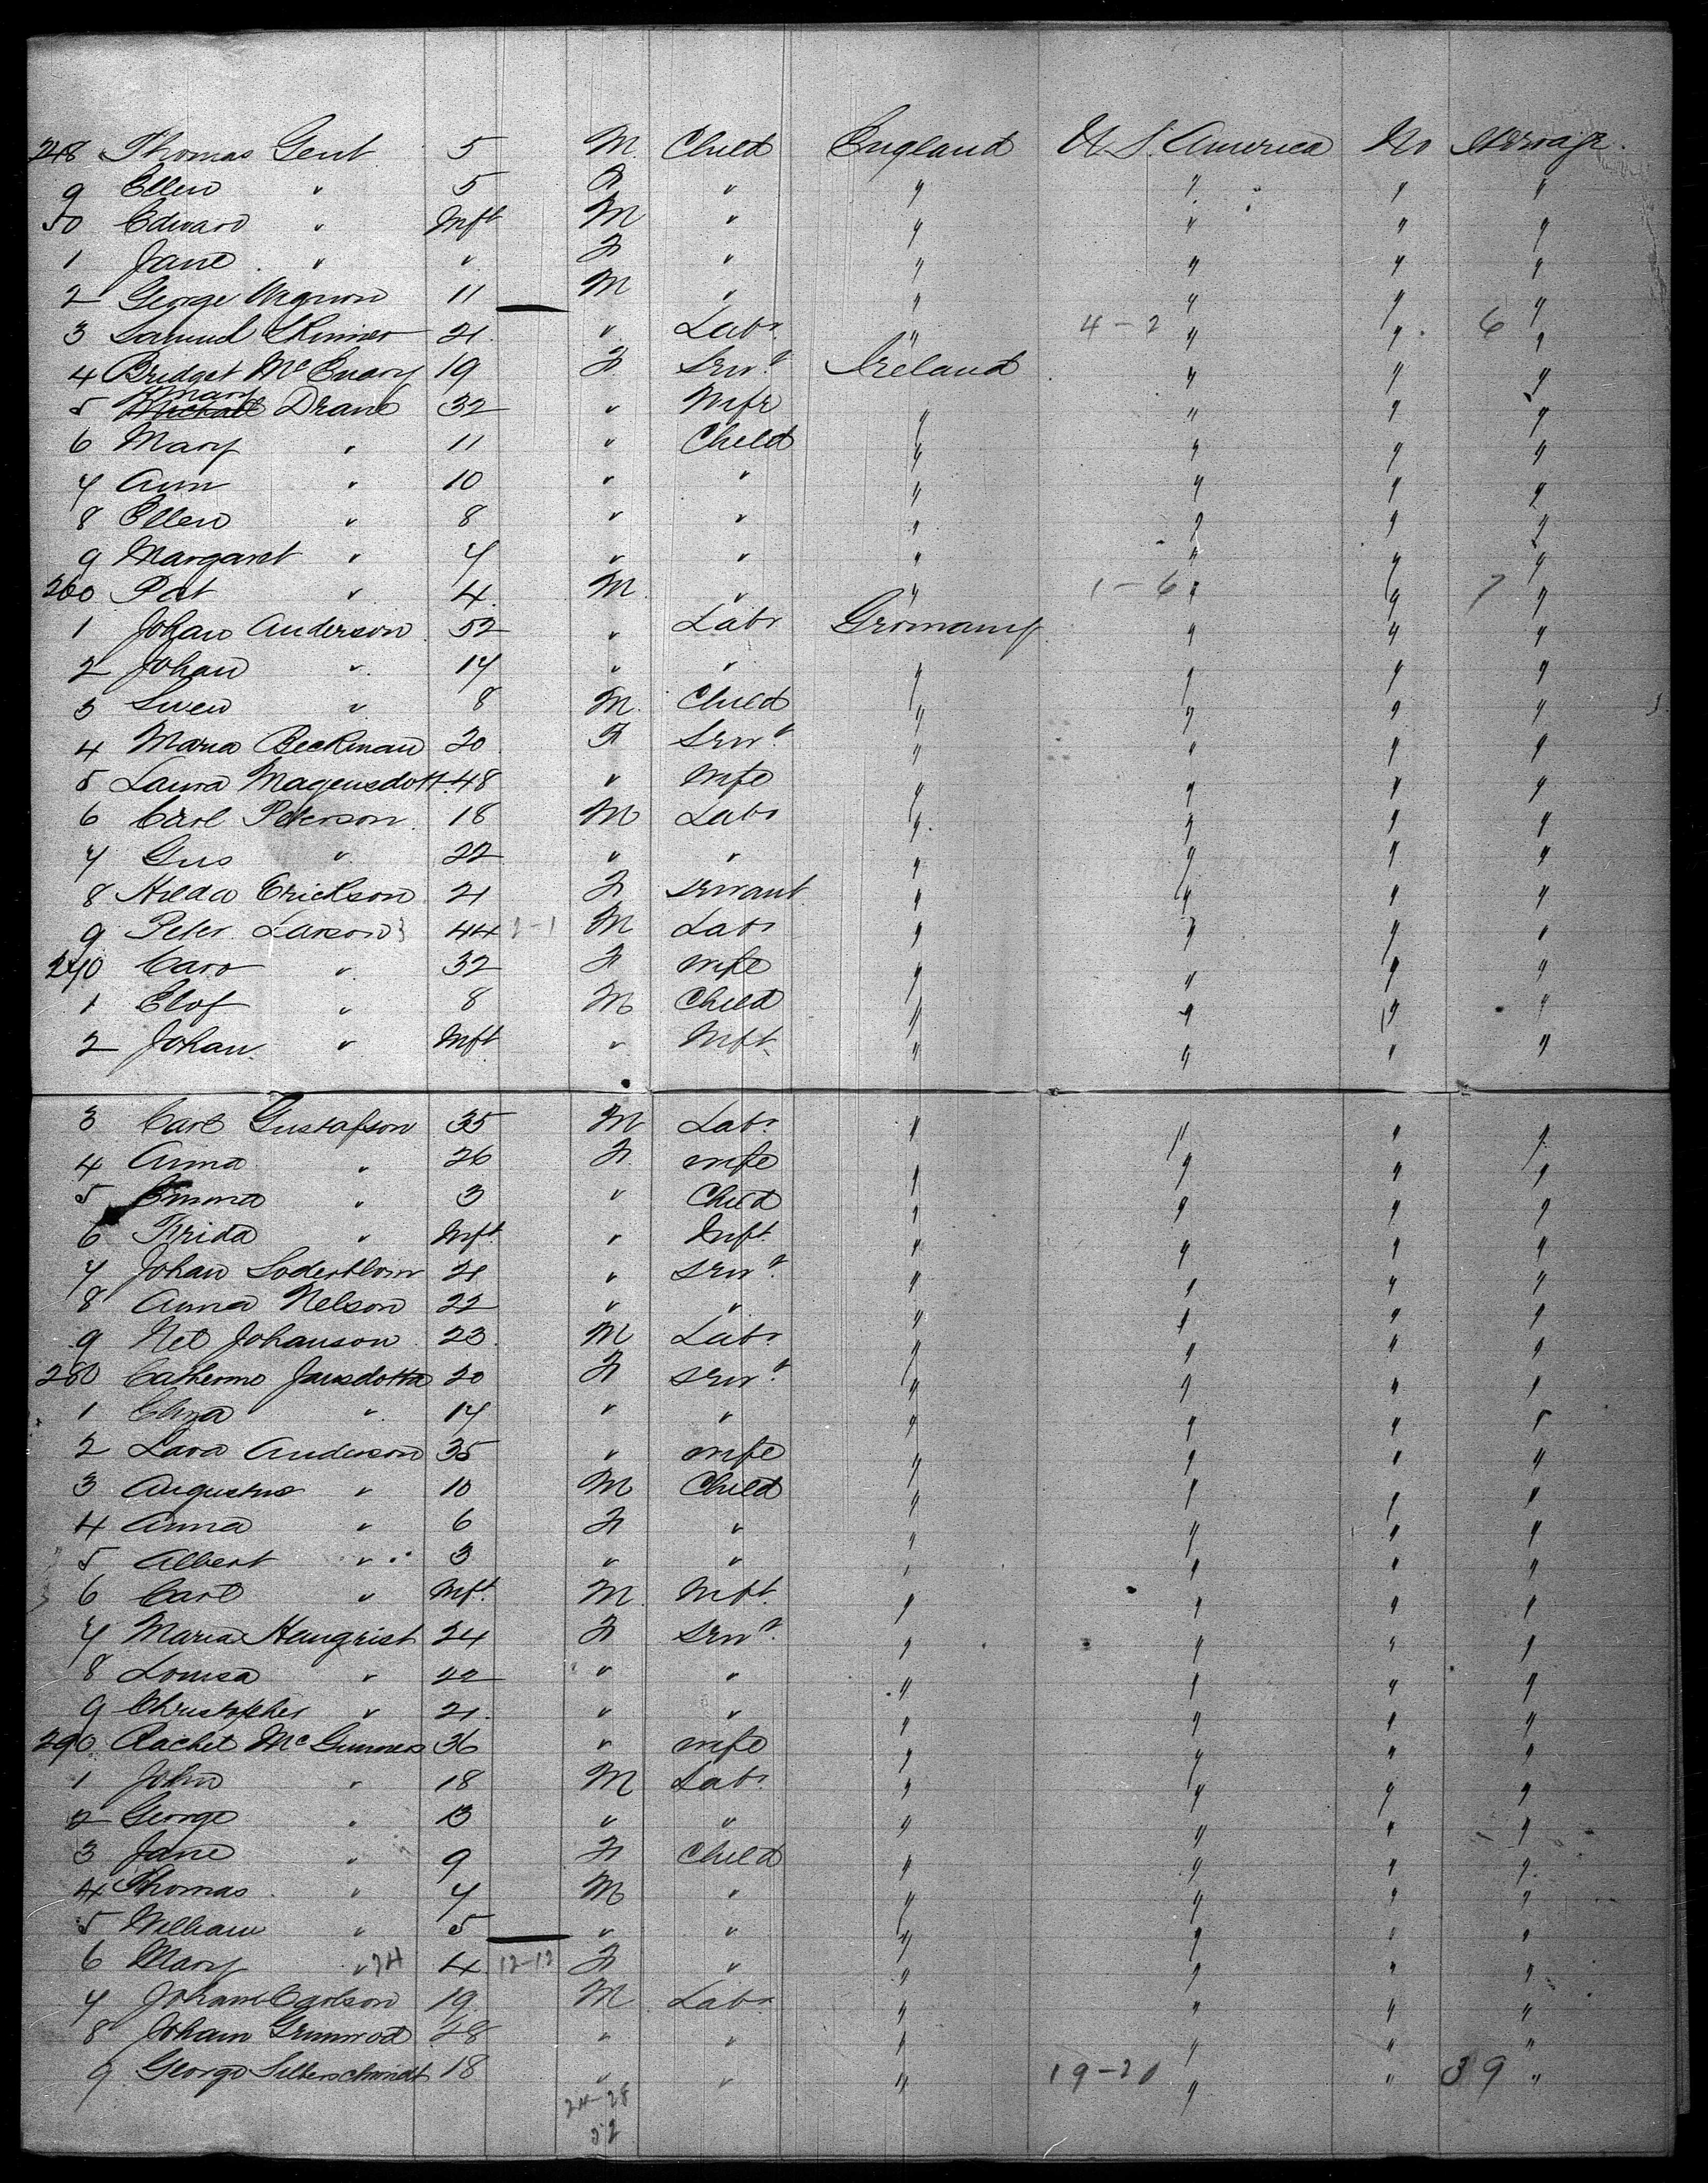 248 Thomas Gent 5 M Child England U.S. America No Steerage.
9 Ellen " 5 F " " " " "
50 Edward " Inft M " " " " "
1 Jane " " F " " " " "
2 George 11 M " " " " "
3 Samuel Skinner 21 " Labr " 4-2 " " 6 "
4 Bridget McEnary 19 F Srvt Ireland " " "
5 Mary Drane 32 " Wife " " " "
6 Mary " 11 " Child " " " "
7 Ann " 10 " " " " " "
8 Ellen " 8 " " " " " "
9 Margaret " 7 " " " " " "
260 Pat " 4 M " " 1-6 " " 7 "
1 Johan Anderson 52 " Labr Germany " " "
2 Johan " 17 " " " " " "
3 Swen " 8 M Child " " " "
4 Maria Beckman 20 F Srvt " " " "
5 Laura Magensdott. 48 " Wife " " " "
6 Carl Peterson 18 M Labr " " " "
7 Gus " 22 " " " " " "
8 Hilda Erickson 21 F Servant " " " "
9 Peter Larson 44 2-1 M Labr " " " "
270 Caro " 32 F Wife " " " "
1 Elof " 8 M Child " " " "
2 Johan " Inft " Inft " " " "
3 Carl Gustafson 35 M Labr " " " "
4 Anna " 26 F Wife " " " "
5 Emma " 3 " Child " " " "
6 Frida " Inft " Inft " " " "
7 Johan Soderblom 21 " Srvt " " " "
8 Anna Nelson 22 " " " " " "
9 Nel Johanson 23 M Labr " " " "
280 Catherine Jansdotta 20 F Srvt " " " "
1 Eliza " 17 " " " " " "
2 Lava Anderson 35 " Wife " " " "
3 Augustus " 10 M Child " " " "
4 Anna " 6 F " " " " "
5 Albert " 3 " " " " " "
6 Carl " Inft M Inft " " " "
7 Maria Hengrist 24 F Srvt " " " "
8 Louisa " 22 " " " " " "
9 Christopher " 21 " " " " " "
290 Rachel McGunness 36 " Wife " " " "
1 John " 18 M Labr " " " "
2 George " 13 " " " " " "
3 Jane " 9 F Child " " " "
4 Thomas " 7 M " " " " "
5 William " 5 " " " " " "
6 Mary " 24 4 12-12 F " " " " "
7 Johan Carlson 19 M Labr " " " "
8 Johann Grunwod 28 " " " " " "
9 George Silberschmidt 18 " " " 19-20 " " 39 "
24-28
52